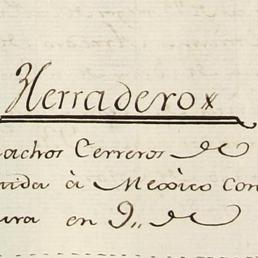 Herradero
achos Cerreros de
vida à Mexico con
ura en 9,, de